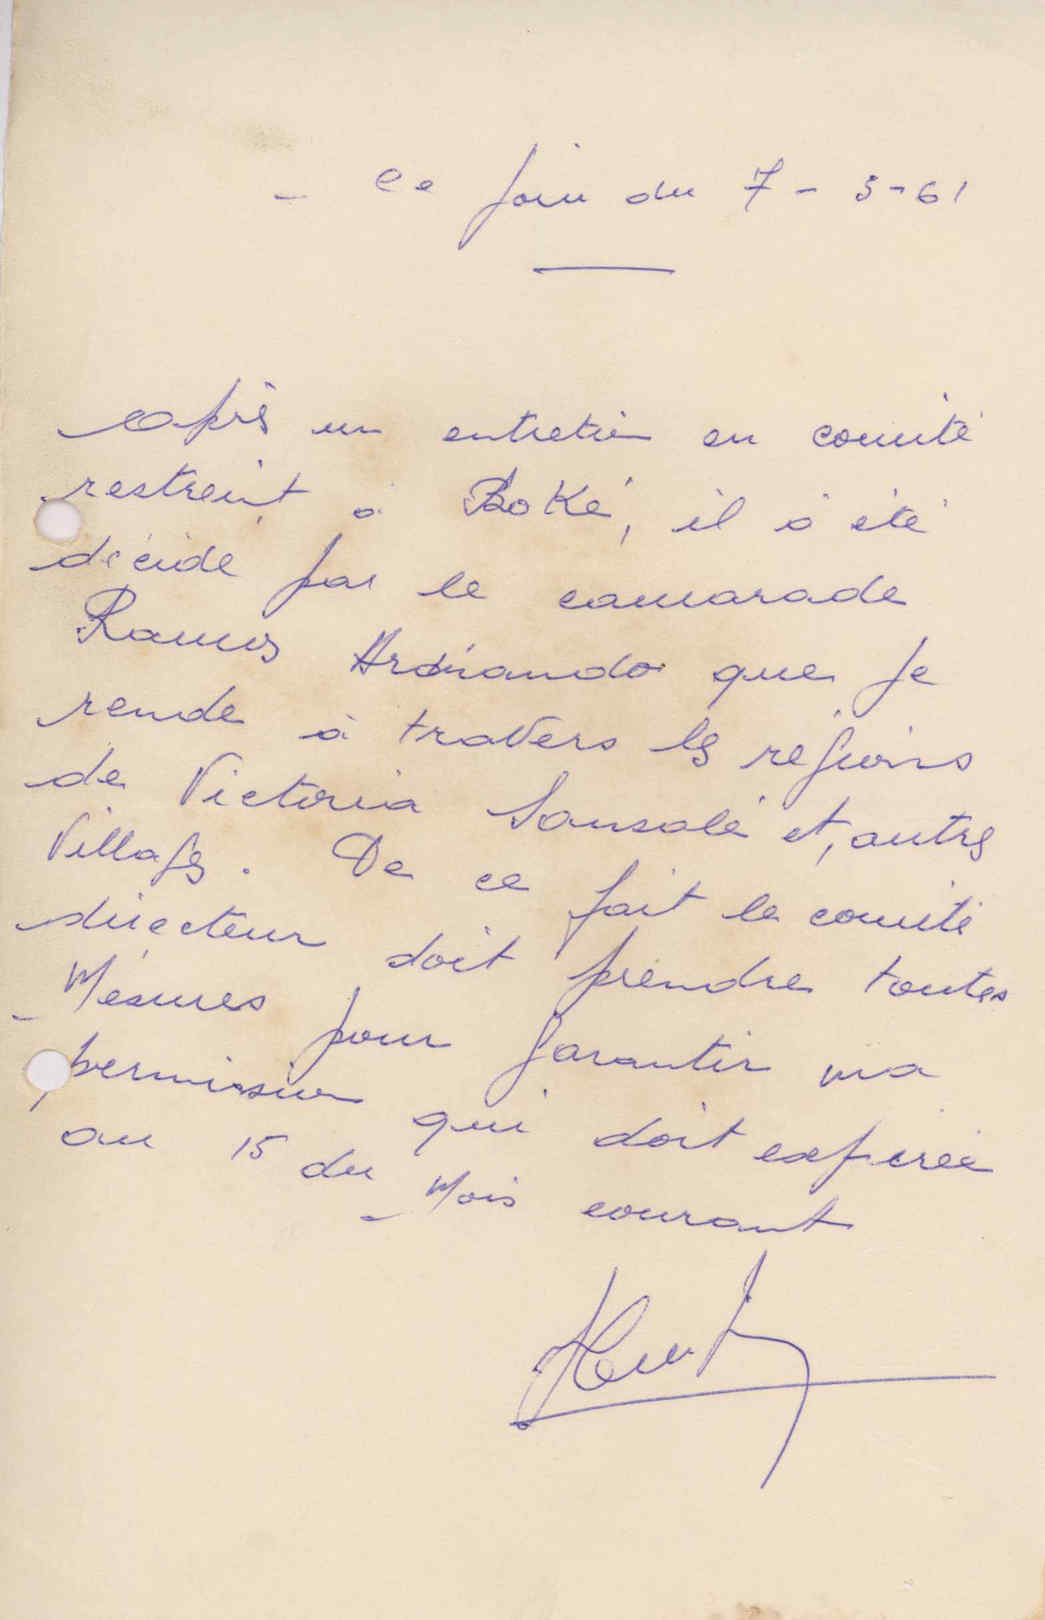 - Ce jour du 7-5-61
Après un entretien en comité
restreint à Boké, il à été
décidé par le camarade
Ramos que je
rende à travers les régions
de Victoria Sansalé et, autres
Villages. De ce fait le comité
directeur doit prendre toutes
Mésures pour garantir ma
permission qui doit expirée
au 15 du Mois courant